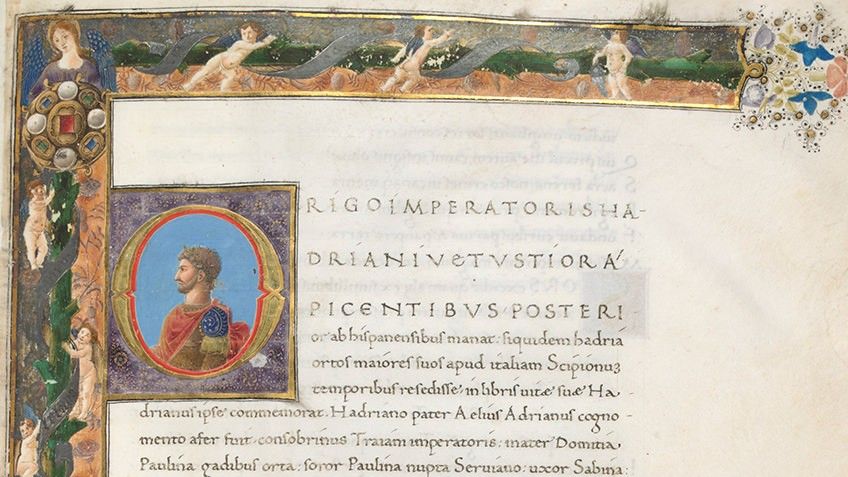 ORIGO IMPERATORIS HA-
DRIANI VETVSTIOR A
PICENTIBVS POSTERI
or ab hispanensibus manat: siquidem hadria
ortos maiores suos apud italiam Scipionum
temporibus resedisse in libris vitæ suæ Ha
drianus ipse commemorat. Hadriano pater Aelius Adrianus cogno
mento afer fuit: consobrinus Traiani imperatoris: mater Domitia
Paulina gadibus orta: soror Paulina nupta Serviano: uxor Sabina: